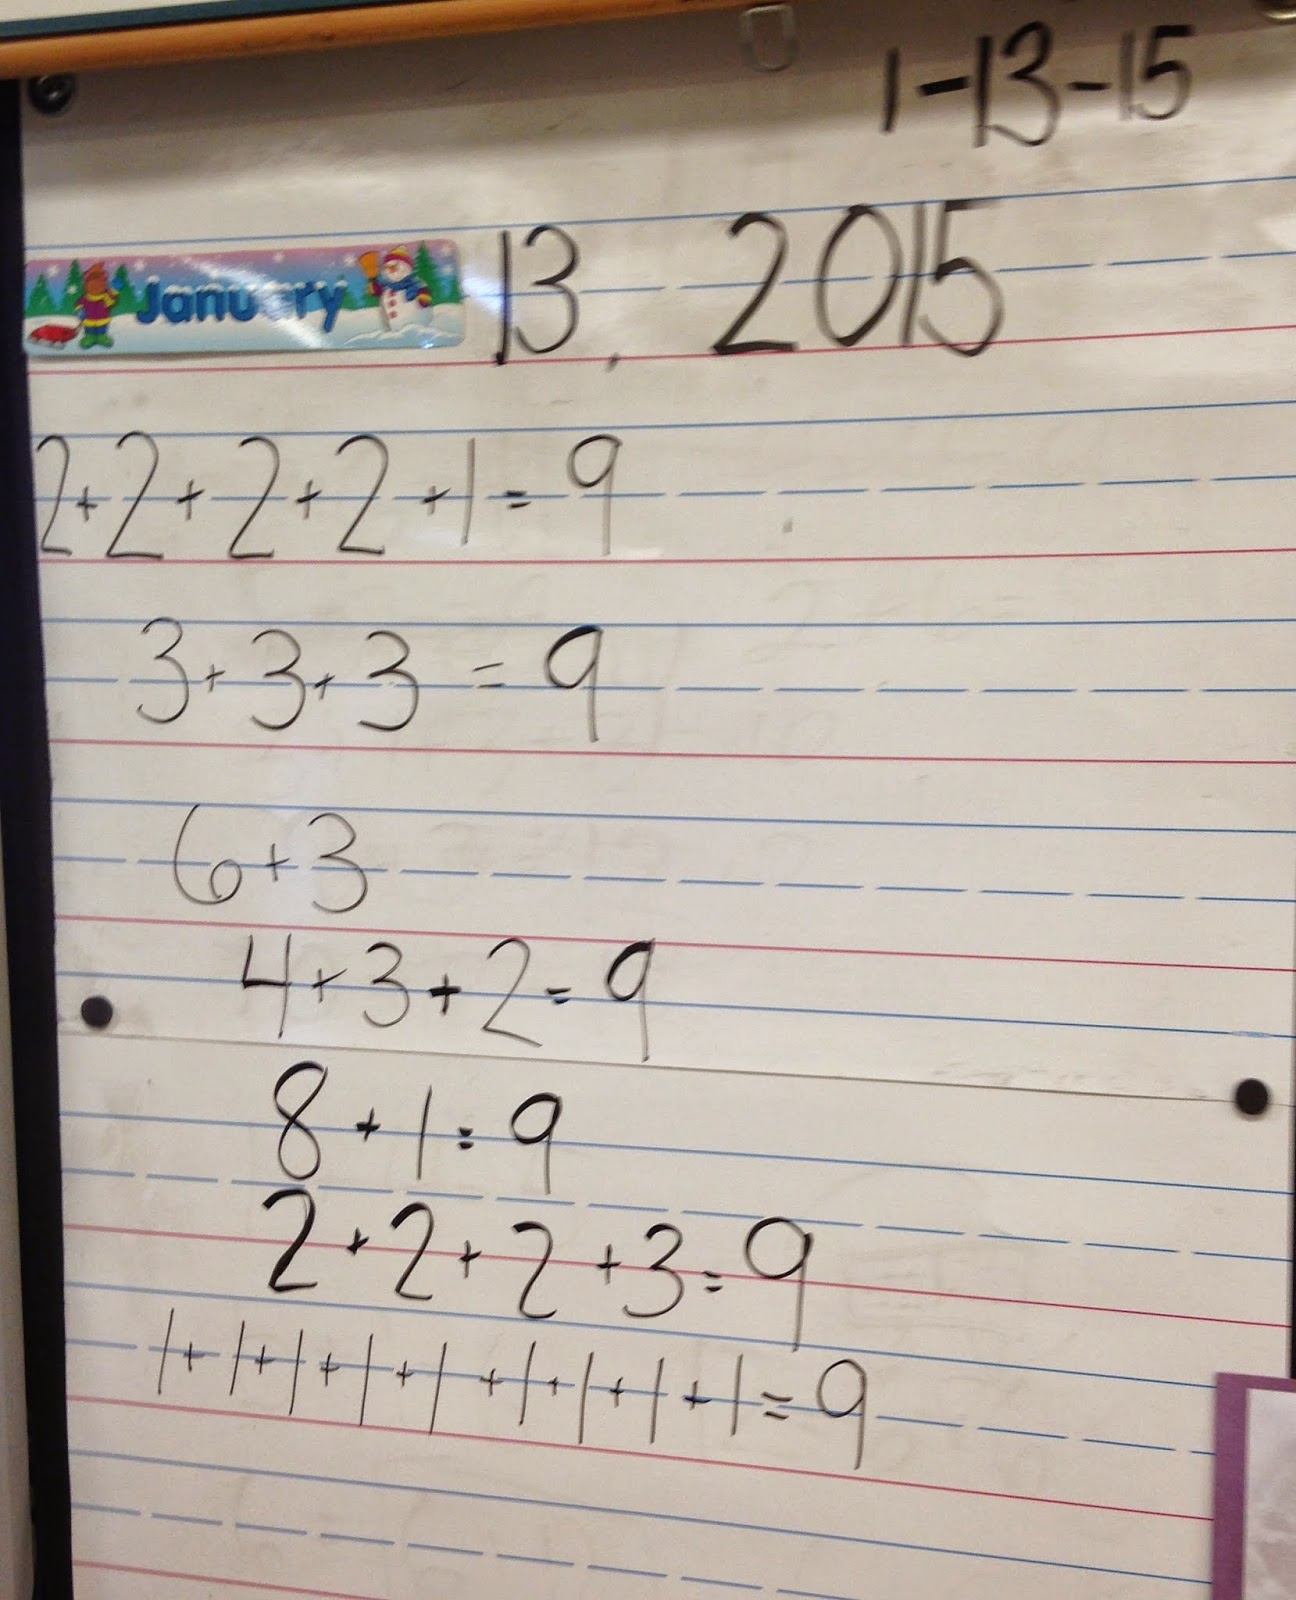 1-13-15
January 13, 2015
2+2+2+2+1=9
3+3+3=9
6+3
4+3+2=9
8+1=9
2+2+2+3=9
1+1+1+1+1+1+1+1+1=9